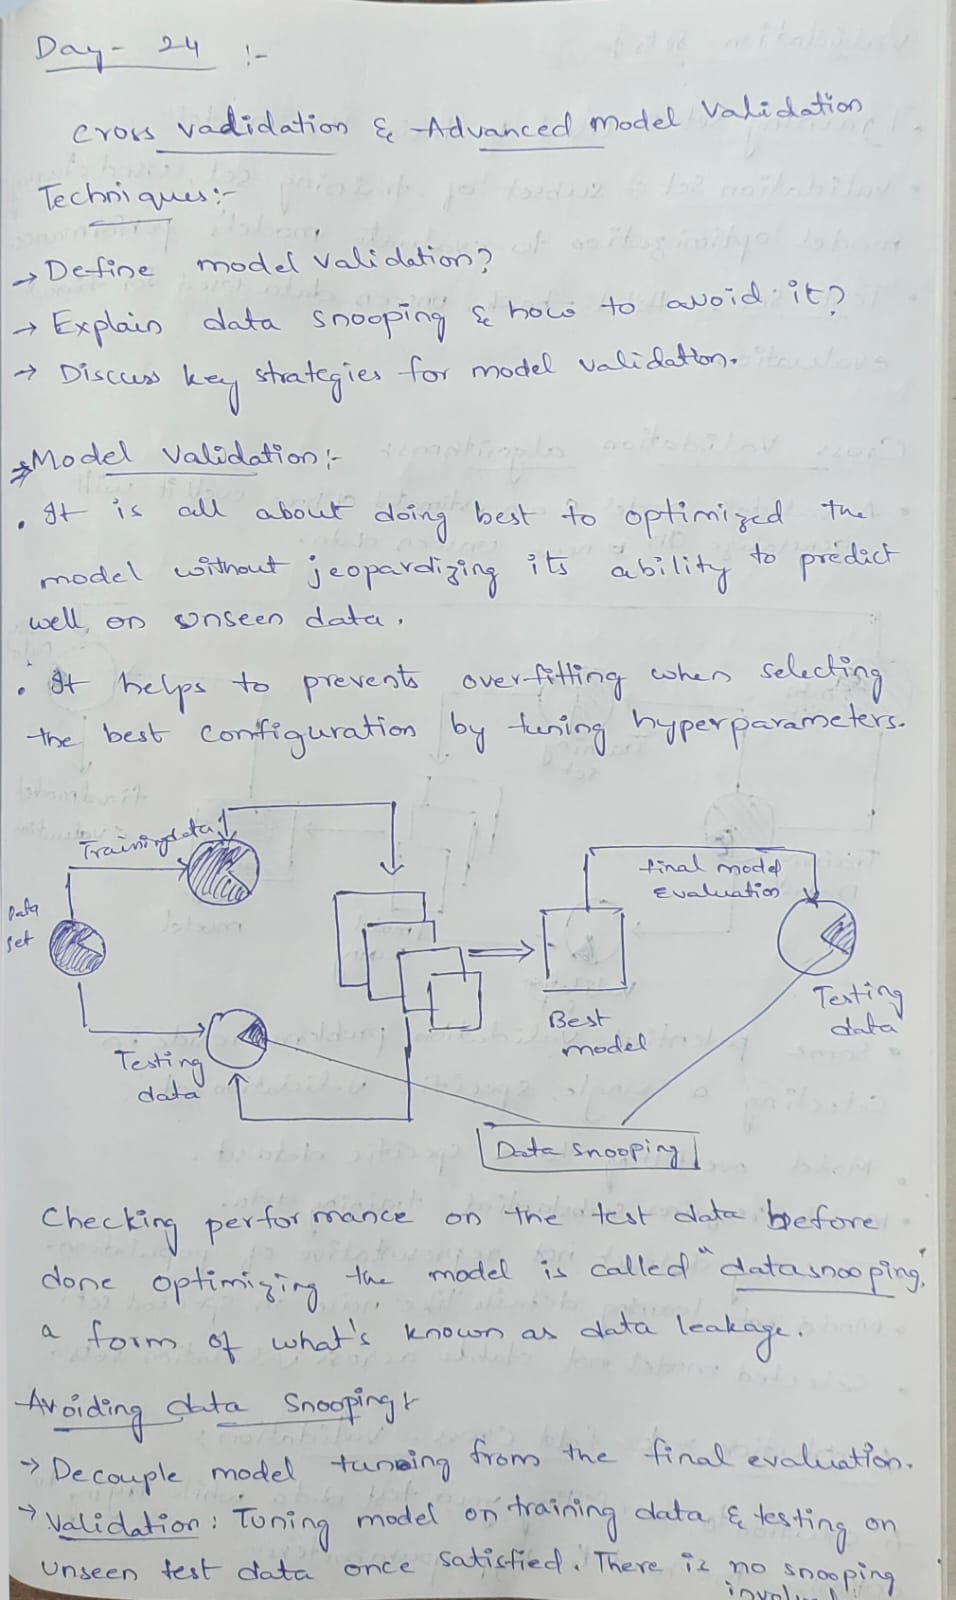 Day- 24 :-
Cross vadidation & Advanced model Validation
Techniques:-
→ Define model validation?
→ Explain data snooping & how to avoid it?
→ Discuss key strategies for model validation.
⇒ Model Validation:-
. It is all about doing best to optimized the
model without jeopardizing its ability to predict
well on unseen data.
. It helps to prevents overfitting when selecting
the best configuration by tuning hyperparameters.
Training data
final model
Evaluation
Data
set
Testing
data
Best
model
Testing
data
Data snooping
Checking performance on the test data before
done optimizing the model is called "datasnooping,"
a form of what's known as data leakage.
Avoiding data Snooping:
→ Decouple model tunning from the final evaluation.
→ Validation: Tuning model on training data & testing on
unseen test data once satisfied. There is no snooping
involved